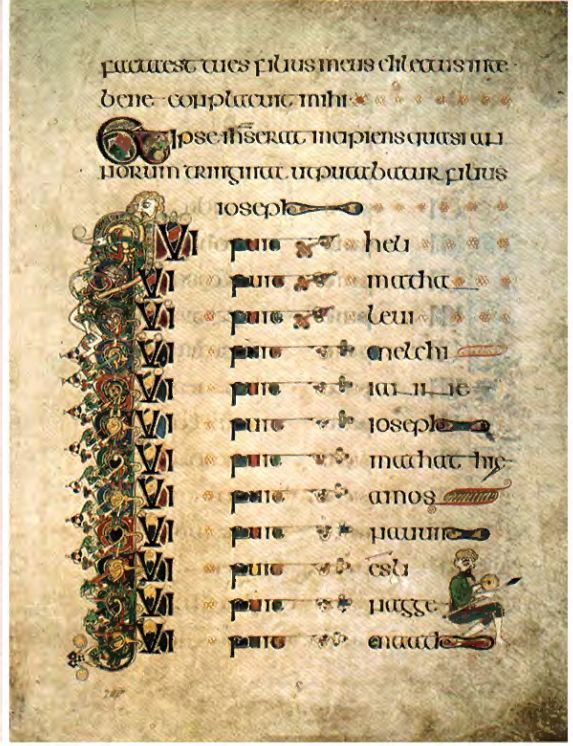 factaest tues filius meus dilectus inte
bene conplacuit mihi
Et ipse ihs erat incipiens quasi an
norum tringinta ut putabatur filius
ioseph
QUI fuit heli
QUI fuit matha
QUI fuit leui
QUI fuit melchi
QUI fuit
QUI fuit ioseph
QUI fuit mathathie
QUI fuit amos
QUI fuit nauum
QUI fuit esli
QUI fuit nagge
QUI fuit maath